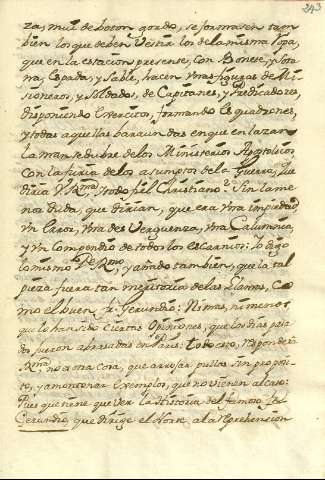 243
za, mui de boton gordo, se formasen tam
bien los que deben Vestir los de la misma Ropa,
que en la estacion presente, con Bonete, y Sota
na, Espada, y Sable, hacen unas figuras de Mi
sioneros, y Soldados, de Capitanes, y Predicadores,
disponiendo Exercitos, formando Esquadrones,
y todas aquellas baraundas en que enlazan
la mansedumbre de los Ministerios Apostolicos
con la furia de los asumptos de la Guerra, que
diria V. Rma. y todo fiel Christiano? Sin la me
nor duda, que dirian, que era una impiedad,
un Error, una desverguenza, una Calumnia,
y un Compendio de todos los escarnios: lo digo
lo mismo Pe. Rmo. y añado tambien, que la tal
pieza fuera tan meritoria de las llamas, Co
mo el buen fr. Gerundio: Ni mas, ni menos
que lo han sido ciertas Opiniones, que los dias pasa
dos fueron abrasadas en Paris. Todo esto, responderá
Rma. no es otra cosa, que arrojar pullas sin proposi
to, y amontonar Exemplos, que no vienen al caso:
Pues que tiene que ver la Historia del famoso fr.
Gerundio, que dirige el Norte a la reprehension